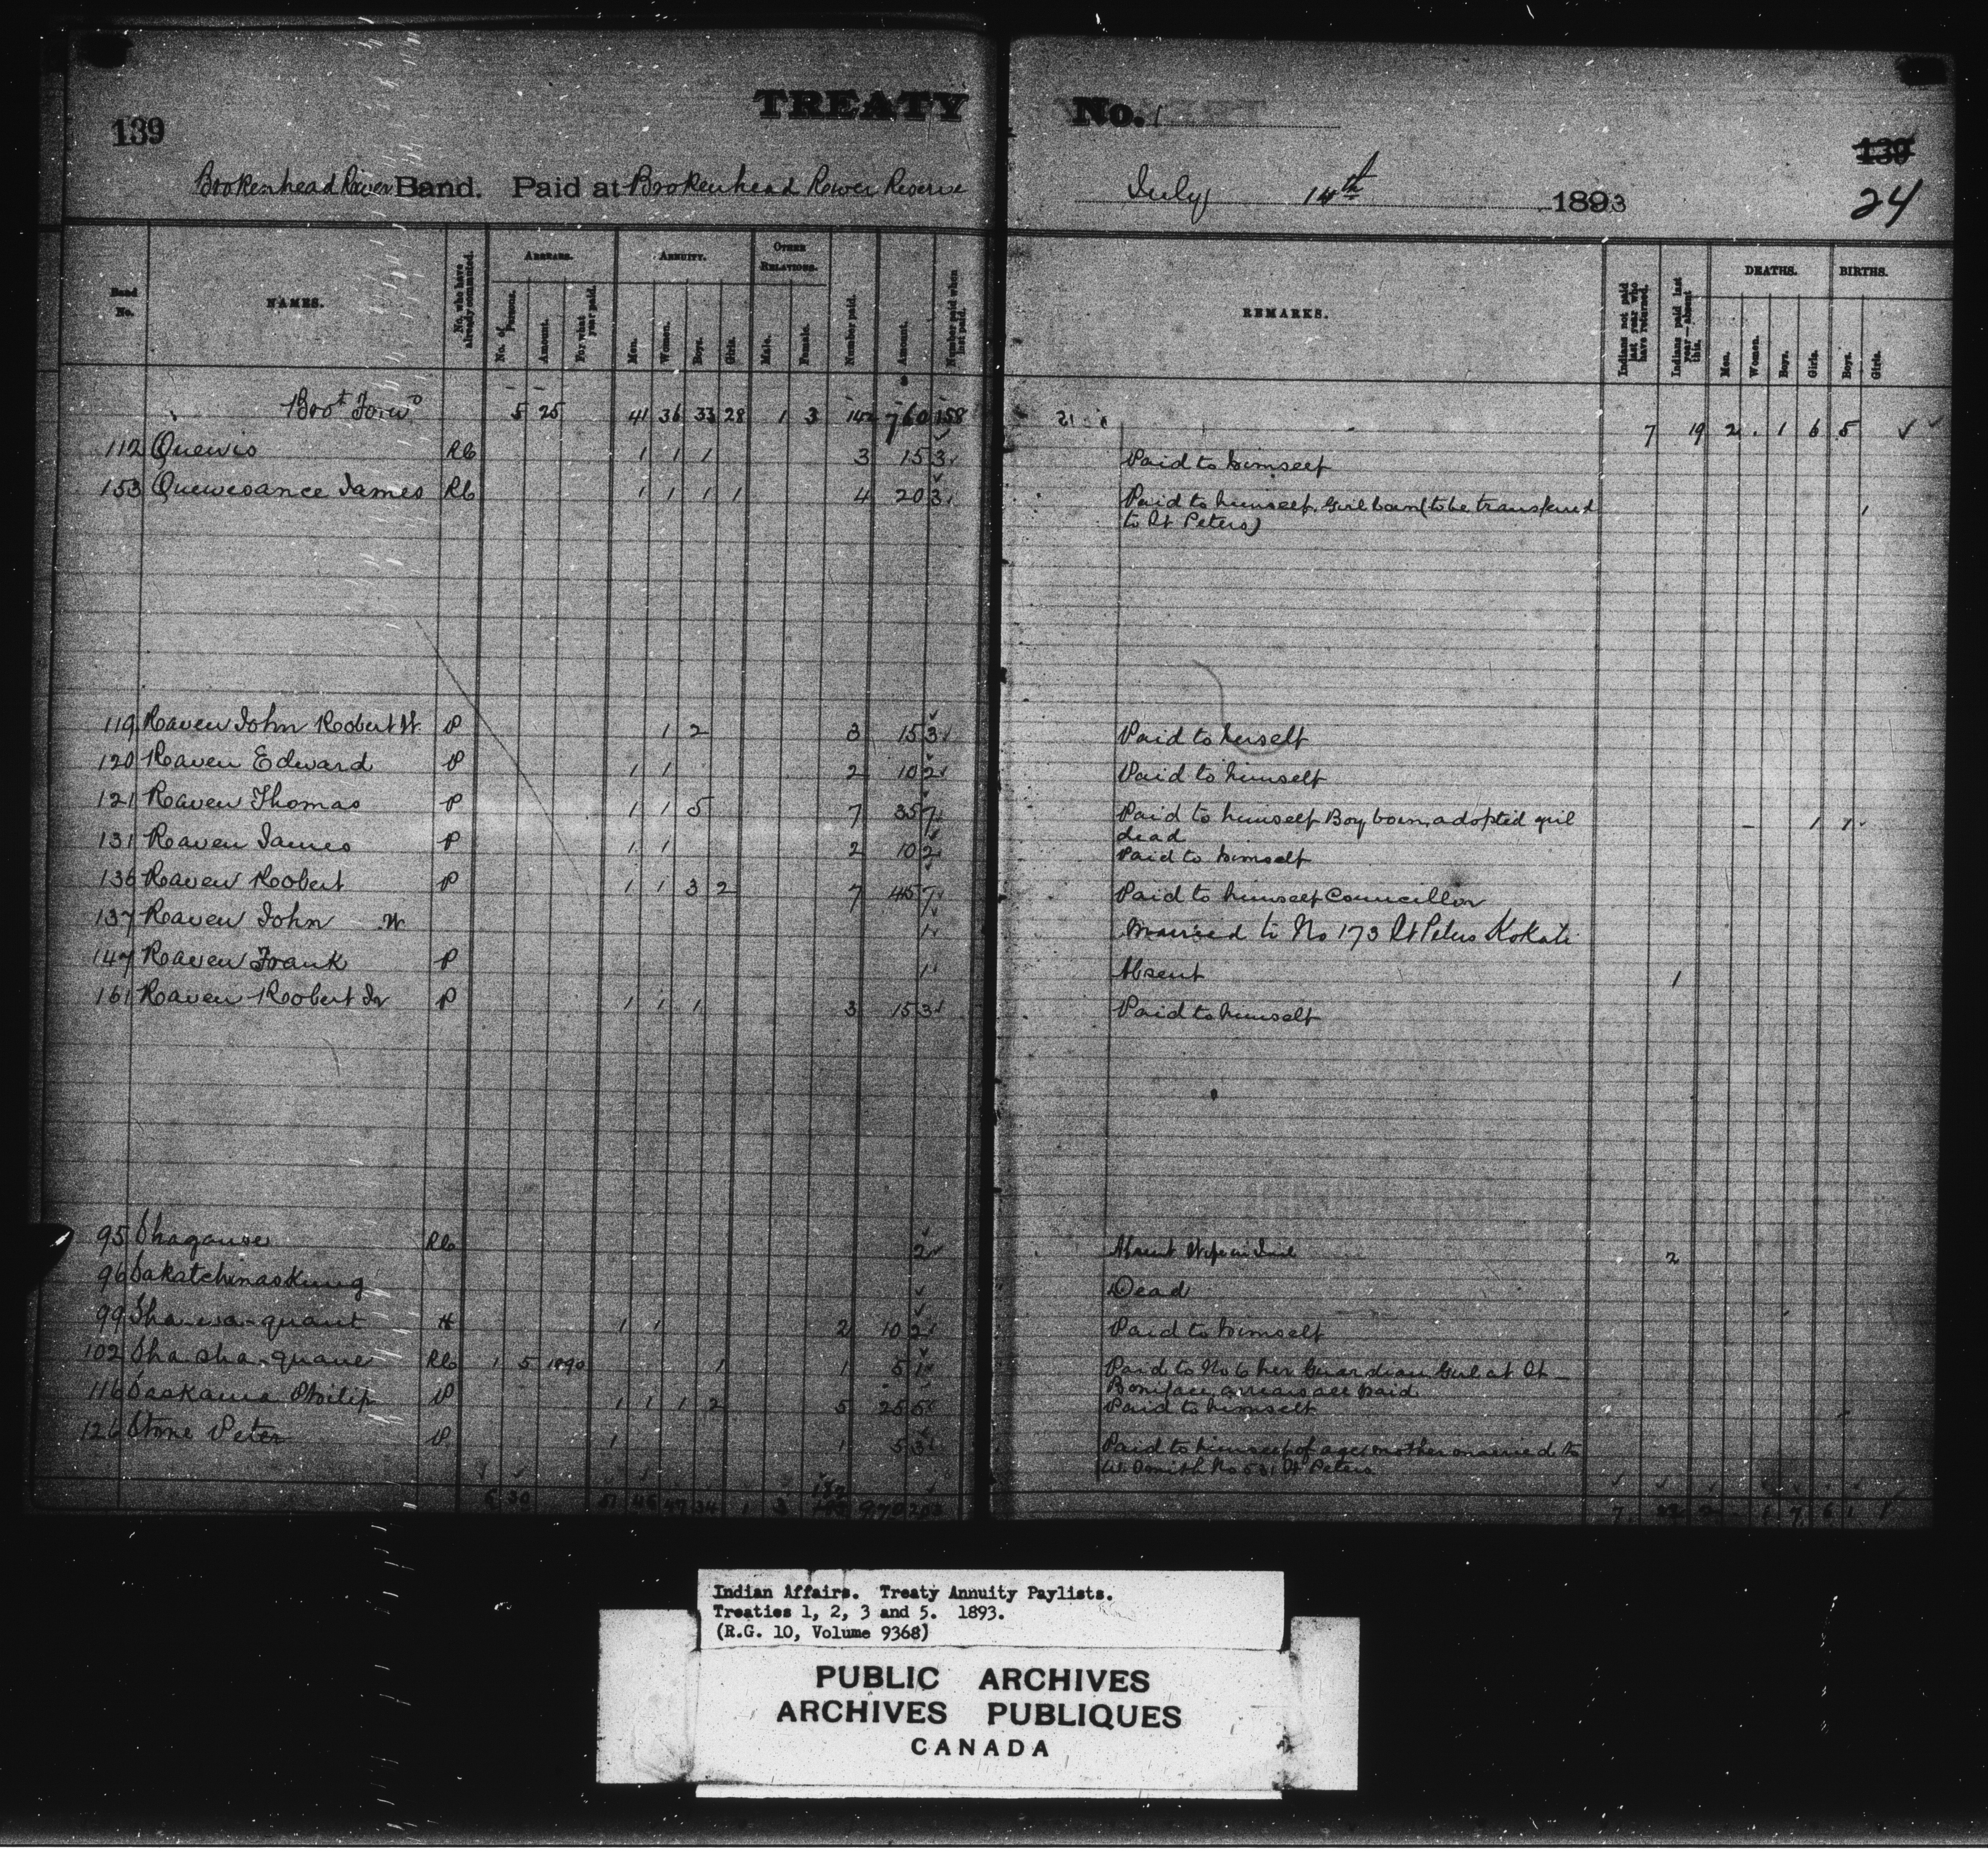 TREATY No. 1
139
139
Brokenhead River Band. Paid at Brokenhead River Reserve July 14th 1893
24
Band No.
NAMES.
No. who have already commuted.
ARREARS.
No. of Persons.
Amount.
For what year paid.
ANNUITY.
Men.
Women.
Boys.
Girls.
OTHER RELATIONS.
Male.
Female.
Number paid.
Amount.
Number paid when last paid.
REMARKS.
Indians not paid last year who have returned.
Indians paid last year—absent this.
DEATHS.
Men.
Women.
Boys.
Girls.
BIRTHS.
Boys.
Girls.
Brot Forwd 5 25 41 36 33 28 1 3 142 760 158 7 19 2 1 6 5
112 Quewis RC 1 1 1 3 15 3 Paid to himself
153 Quewesance James RC 1 1 1 1 4 20 3 Paid to himself. Girl born (to be transferred 1
to St Peters)
119 Raven John Robert W. P 1 2 3 15 3 Paid to herself
120 Raven Edward P 1 1 2 10 2 Paid to himself
121 Raven Thomas P 1 1 5 7 35 7 Paid to himself Boy born, adopted girl 1 1
dead
131 Raven James P 1 1 2 10 2 Paid to himself
136 Raven Robert P 1 1 3 2 7 45 7 Paid to himself Councillor
137 Raven John W. 1 Married to No 173 St Peters Kokati
147 Raven Frank P 1 Absent 1
161 Raven Robert Jr P 1 1 1 3 15 3 Paid to himself
95 Shaganse RC 2 Absent Wife in Jail 2
96 Sakatchinaskung Dead
99 Sha-wa-quant H 1 1 2 10 2 Paid to himself
102 Sha-sha-quane RC 1 5 1890 1 1 5 1 Paid to No 6 her Guardian Girl at St
Boniface, arrears all paid
116 Saskawa Philip P 1 1 1 2 5 25 5 Paid to himself
126 Stone Peter P 1 1 5 3 Paid to himself of age, mother married to
W. Smith No 531 St Peters
6 30 51 46 47 34 1 3 182 970 203 7 2 1 7 6 1
Indian Affairs. Treaty Annuity Paylists.
Treaties 1, 2, 3 and 5. 1893.
(R.G. 10, Volume 9368)
PUBLIC ARCHIVES
ARCHIVES PUBLIQUES
CANADA